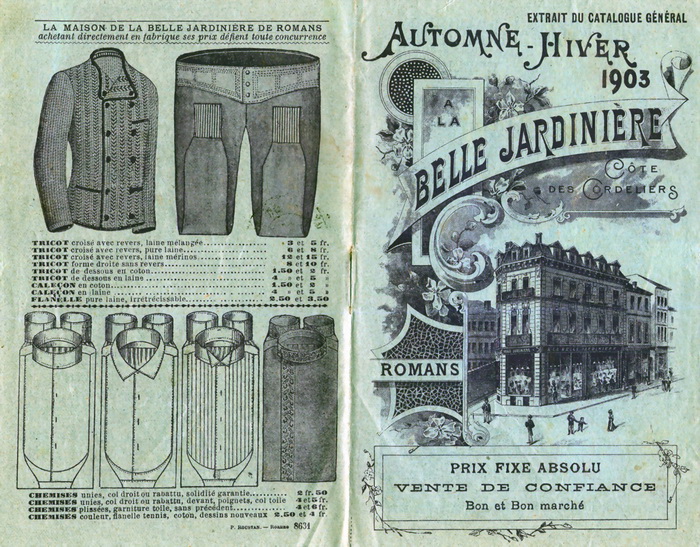 LA MAISON DE LA BELLE JARDINIÈRE DE ROMANS
achetant directement en fabrique ses prix défient toute concurrence
TRICOT croisé avec revers, laine mélangée 3 et 5 fr.
TRICOT croisé avec revers, pure laine 6 et 8 fr.
TRICOT croisé avec revers, laine mérinos 12 et 15 fr.
TRICOT forme droite sans revers 8 et 10 fr.
TRICOT de dessous en coton 1.50 et 2 fr.
TRICOT de dessous en laine 4 » et 5 »
CALEÇON en coton 1.50 et 2 »
CALEÇON en laine 4 » et 5 »
FLANELLE pure laine, irrétrécissable 2.50 et 3.50
CHEMISES unies, col droit ou rabattu, solidité garantie 2 fr. 50
CHEMISES unies, col droit ou rabattu, devant, poignets, col toile 4 et 5 fr.
CHEMISES plissées, garniture toile, sans précédent 4 et 6 fr.
CHEMISES couleur, flanelle tennis, coton, dessins nouveaux 2.50 et 4 fr.
8631
EXTRAIT DU CATALOGUE GÉNÉRAL
AUTOMNE-HIVER
1903
A
LA
BELLE JARDINIÈRE
CÔTE
DES CORDELIERS
ROMANS
PRIX FIXE ABSOLU
VENTE DE CONFIANCE
Bon et Bon marché